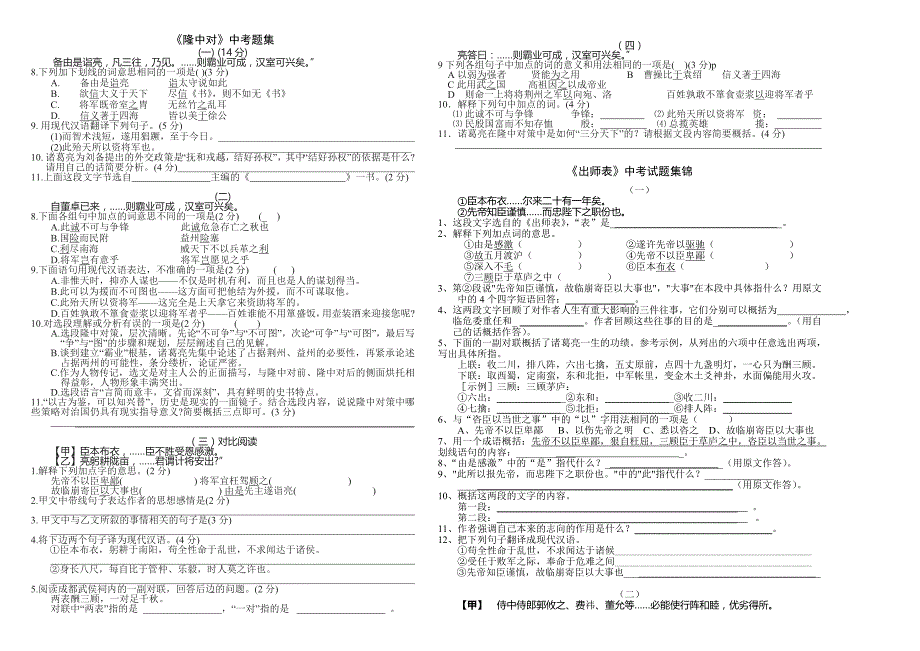 《隆中对》中考题集
(一) (14 分)
备由是诣亮，凡三往，乃见。……则霸业可成，汉室可兴矣。”
8.下列加下划线的词意思相同的一项是( )(3 分)
A. 备由是诣亮 诣太守说如此
B. 欲信大义于天下 尽信《书》，则不如无《书》
C. 将军既帝室之胄 无丝竹之乱耳
D. 信义著于四海 皆以美于徐公
9. 用现代汉语翻译下列句子。(5 分)
(1)而智术浅短，遂用猖蹶，至于今日。
(2)此殆天所以资将军也。
10. 诸葛亮为刘备提出的外交政策是“抚和戎越，结好孙权”，其中“结好孙权”的依据是什么?
请用自己的话简要分析。(4 分)
11.上面这段文字节选自 主编的《 》一书。(2 分)
(二)
自董卓已来，……则霸业可成，汉室可兴矣。
8.下面各组句中加点的词意思不同的一项是(2 分) ( )
A.此诚不可与争锋 此诚危急存亡之秋也
B.国险而民附 益州险塞
C.利尽南海 威天下不以兵革之利
D.将军岂有意乎 将军岂愿见之乎
9.下面语句用现代汉语表达，不准确的一项是(2 分) ( )
A.非惟天时，抑亦人谋也——不仅是时机有利，而且也是人的谋划得当。
B.此可以为援而不可图也——这方面可把他结为外援，而不可谋取他。
C.此殆天所以资将军——这完全是上天拿它来资助将军的。
D.百姓孰敢不箪食壶浆以迎将军者乎——百姓谁能不用箪盛饭，用壶装酒来迎接您呢?
10.对选段理解或分析有误的一项是(2 分) ( )
A.选段隆中对策，层次清晰，先论“不可争”与“不可图”，次论“可争”与“可图”，最后写
“争”与“图”的步骤和规划，层层阐述自己的见解。
B.谈到建立“霸业”根基，诸葛亮先集中论述了占据荆州、益州的必要性，再紧承论述
占据两州的可能性，条分缕析，论证严密。
C.作为人物传记，选文是对主人公的正面描写，与隆中对前、隆中对后的侧面烘托相
得益彰，人物形象丰满突出。
D.选段语言“言简而意丰，文省而深刻”，具有鲜明的史书特点。
11.“以古为鉴，可以知兴替”，历史是现实的一面镜子。结合选段内容，说说隆中对策中哪
些策略对治国仍具有现实指导意义? 简要概括三点即可。(3 分)
（三）对比阅读
【甲】臣本布衣，……臣不胜受恩感激。
【乙】亮躬耕陇亩，……君谓计将安出?”
1.解释下列加点字的意思。(2 分)
先帝不以臣卑鄙( ) 将军宜枉驾顾之( )
故临崩寄臣以大事也( ) 由是先主遂诣亮( )
2.甲文中带线句子表达作者的思想感情是(2 分)
3. 甲文中与乙文所叙的事情相关的句子是(3 分)
4.将下边两个句子译为现代汉语。(4 分)
①臣本布衣，躬耕于南阳，苟全性命于乱世，不求闻达于诸侯。
②身长八尺，每自比于管仲、乐毅，时人莫之许也。
5.阅读成都武侯祠内的一副对联，回答后边的问题。(2 分)
两表酬三顾，一对足千秋。
对联中“两表”指的是 ，“一对”指的是 。
（四）
亮答曰：……则霸业可成，汉室可兴矣。”
9 下列各组句子中加点的词的意义和用法相同的一项是( )(3 分)p
A 以弱为强者 贤能为之用 B 曹操比于袁绍 信义著于四海
C 此用武之国 高祖因之以成帝业
D 则命一上将将荆州之军以向宛、洛 百姓孰敢不箪食壶浆以迎将军者乎
10．解释下列句中加点的词。(4 分)
⑴ 此诚不可与争锋 诚： ⑵ 此殆天所以资将军 资：
⑶ 民殷国富而不知存恤 殷： ⑷ 总揽英雄 揽：
11．诸葛亮在隆中对策中是如何“三分天下”的? 请根据文段内容简要概括。(4 分)
《出师表》中考试题集锦
（一）
①臣本布衣……尔来二十有一年矣。
②先帝知臣谨慎，……而忠陛下之职份也。
1、这段文字选自的《出师表》，“表”是 。
2、解释下列加点词的意思。
①由是感激（ ） ②遂许先帝以驱驰（ ）
③故五月渡泸（ ） ④先帝不以臣卑鄙（ ）
⑤深入不毛（ ） ⑥臣本布衣（ ）
⑦三顾臣于草庐之中（ ）
3、第②段说"先帝知臣谨慎，故临崩寄臣以大事也"，"大事"在本段中具体指什么? 用原文
中的 4 个四字短语回答： 。
4、这两段文字回顾了对作者人生有重大影响的三件往事，它们分别可以概括为 ，
临危委重任和 。作者回顾这些往事的目的是 。（用自
己的话概括作答）。
5、下面的一副对联概括了诸葛亮一生的功绩。参考示例，从列出的六项中任意选出两项，
写出具体所指。
上联：收二川，排八阵，六出七擒，五丈原前，点四十九盏明灯，一心只为酬三顾。
下联：取西蜀，定南蛮，东和北拒，中军帐里，变金木土爻神卦，水面偏能用火攻。
［示例］三顾：三顾茅庐：
①六出： ②东和： ③收二川：
④七擒： ⑤北拒： ⑥排八阵：
6、与“咨臣以当世之事”中的“以”字用法相同的一项是（ ）
A、先帝不以臣卑鄙 B、以伤先帝之明 C、悉以咨之 D、故临崩寄臣以大事也
7、用一个成语概括：先帝不以臣卑鄙，猥自枉屈，三顾臣于草庐之中，咨臣以当世之事。
划线语句的内容：
8、“由是感激”中的“是”指代什么? （用原文作答）。
9、"此所以报先帝，而忠陛下之职份也。"中的"此"指代什么?
（用原文作答）。
10、概括这两段的文字的内容。
第一段： 。
第二段： 。
11、作者强调自己本来的志向的作用是什么? 。
12、把下列句子翻译成现代汉语。
①苟全性命于乱世，不求闻达于诸候
②受任于败军之际，奉命于危难之间
③先帝知臣谨慎，故临崩寄臣以大事也
（二）
【甲】 侍中侍郎郭攸之、费祎、董允等……必能使行阵和睦，优劣得所。